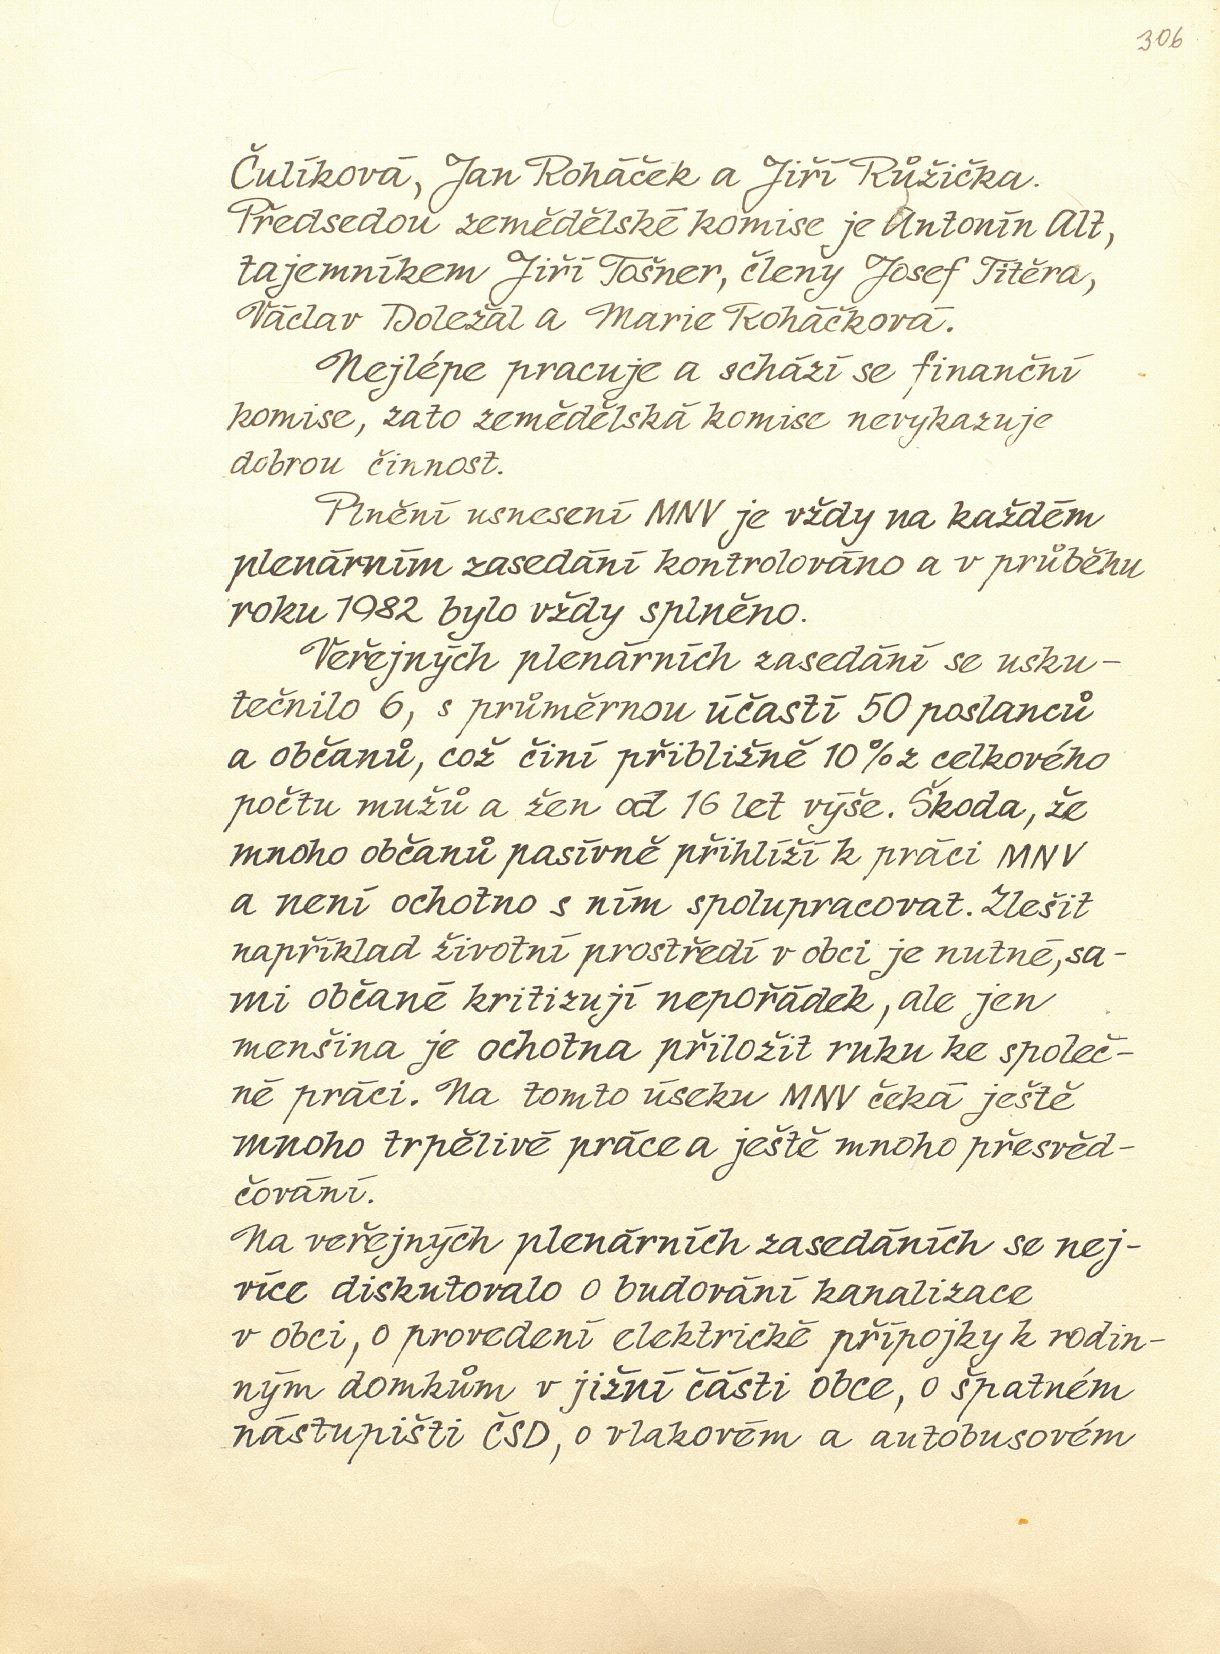 306
Čulíková, Jan Roháček a Jiří Růžička.
Předsedou zemědělské komise je Antonín Alt,
tajemníkem Jiří Tošner, členy Josef Titěra,
Václav Doležal a Marie Roháčková.
Nejlépe pracuje a schází se finanční
komise, zato zemědělská komise nevykazuje
dobrou činnost.
Plnění usnesení MNV je vždy na každém
plenárním zasedání kontrolováno a v průběhu
roku 1982 bylo vždy splněno.
Veřejných plenárních zasedání se usku-
tečnilo 6, s průměrnou účastí 50 poslanců
a občanů, což činí přibližně 10% z celkového
počtu mužů a žen od 16 let výše. Škoda, že
mnoho občanů pasívně přihlíží k práci MNV
a není ochotno s ním spolupracovat. Zlešit
například životní prostředí v obci je nutné, sa-
mi občané kritizují nepořádek, ale jen
menšina je ochotna přiložit ruku ke společ-
né práci. Na tomto úseku MNV čeká ještě
mnoho trpělivé práce a ještě mnoho přesvěd-
čování.
Na veřejných plenárních zasedáních se nej-
více diskutovalo o budování kanalizace
v obci, o provedení elektrické přípojky k rodin-
ným domkům v jižní části obce, o špatném
nástupišti ČSD, o vlakovém a autobusovém